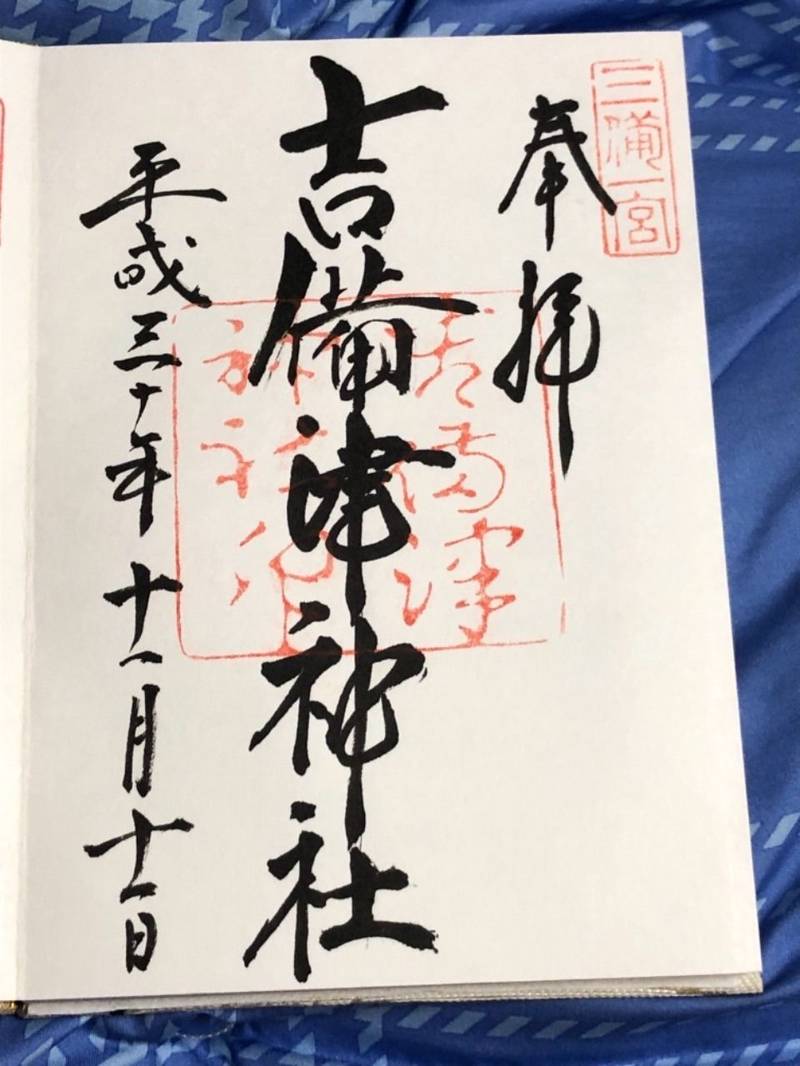 三備一宮
奉拝
吉備津神社
吉備津
神社
平成三十年十一月十一日